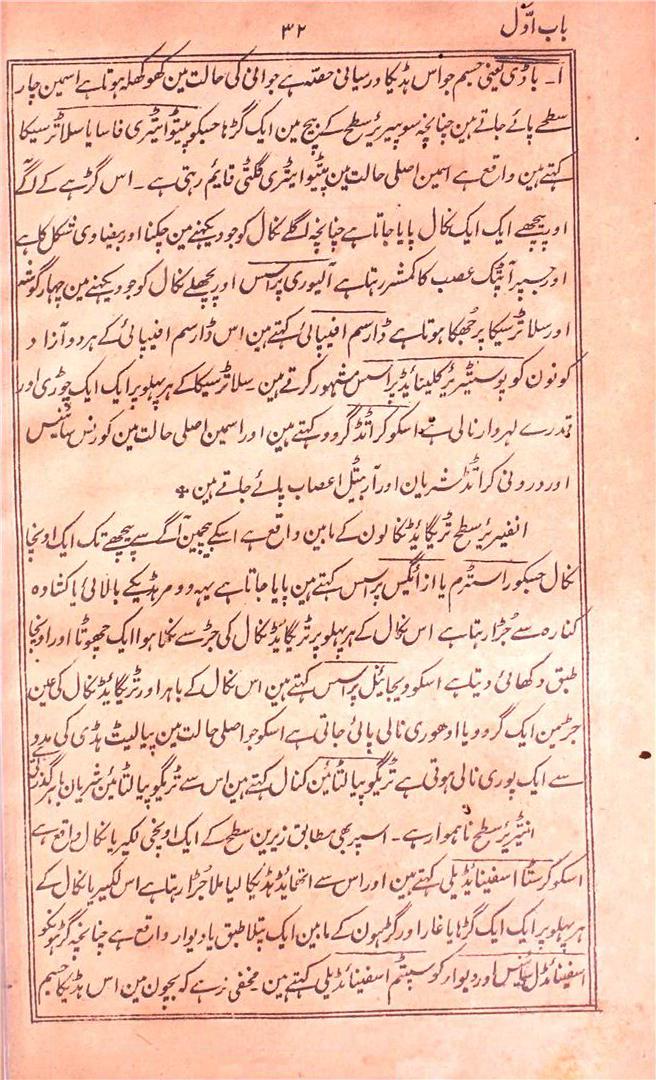 باب اوّل
۳۲
۱۔ باڈی یعنی جسم جو اس ہڈیکا درمیانی حصّہ ہے جوانی کی حالت مین کھوکھلہ ہوتا ہے اسمین چار
سطحے پائے جاتے ہین چنانچہ سوپیریئر سطح کے بیچ مین ایک گڑہا جسکو پیٹوایٹری فاسا یا سلاٹر سیکا
کہتے ہین واقع ہے اسمین اصلی حالت مین پٹیوایٹری گلٹی قایم رہتی ہے۔ اس گڑہے کے آگے
اور پیچھے ایک ایک نکال پایا جاتا ہے چنانچہ اگلے نکال کو جو دیکہنے مین چکنا اور بیضاوی شکل کا ہے
اور جسپر آپٹک عصب کا کمشر رہتا ہے آلیوری پراسس اور پچھلے نکال کو جو دیکہنے مین چہار گوشہ
اور سلاٹر سیکا پر جُھکا ہوتا ہے ڈارسم افیپائی کہتے ہین اس ڈارسم افیپائی کے ہر دو آزاد
کونون کو پوسٹیریئر کلینائیڈ پراسس مشہور کرتے ہین۔ سلاٹر سیکا کے ہر پہلو پر ایک ایک چوڑی اور
قدرے لہر وار نالی ہے اسکو کراٹڈ گروو کہتے ہین اور اسمین اصلی حالت مین کورنس سائنس
اور درونی کراٹڈ شریان اور آربیٹل اعصاب پائے جاتے ہین *
انفیریر سطح ٹریگائیڈ نکالون کے مابین واقع ہے اسکے بیچمین آگے سے پیچھے تک ایک اونچا
نکال جسکو راسٹرم یا ازائگس پراسس کہتے ہین پایا جاتا ہے یہہ وومر ہڈیکے بالائی یا کشادہ
کنارہ سے جُڑا رہتا ہے اس نکال کے ہر پہلو پر ٹریگائیڈ نکال کی جڑ سے نکلا ہوا ایک چھوٹا اور اونچا
طبق دکھائی دیتا ہے اسکو ویجائینل پراسس کہتے ہین اس نکال کے باہر اور ٹریگائیڈ نکال کی عین
جڑ مین ایک گروو یا ادھوری نالی پائی جاتی ہے اسکو جو اصلی حالت مین پیالیٹ ہڈی کی مدد
سے ایک پوری نالی ہوتی ہے ٹریگوپیالٹائین کنال کہتے ہین اس سے ٹریگوپیالٹائین شریان باہر گذرتی ہے
انٹیریر سطح ناہموار ہے۔ اسپر بھی مطابق زیرین سطح کے ایک اونچی لکیر یا نکال واقع ہے
اسکو کرسٹا اسفینائڈیلی کہتے ہین اور اس سے اتھمائڈ ہڈیکا لیاملا جُڑا رہتا ہے اس لکیر یا نکال کے
ہر پہلو پر ایک ایک گڑہا یا غار اور گڑہون کے مابین ایک پتلا طبق یا دیوار واقع ہے چنانچہ گڑہونکو
اسفینائڈل سائنس اور دیوار کو سپٹم اسفینائڈیلی کہتے ہین مخفی نرہے کہ بچون مین اس ہڈیکا جسم